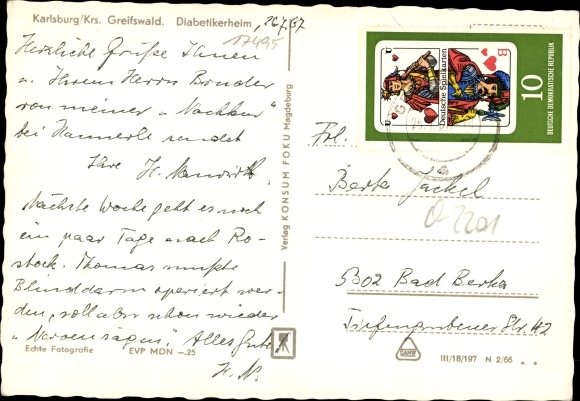 Karlsburg/Krs. Greifswald. Diabetikerheim, 26/7/67
17495
Herzliche Grüße Ihnen
u. Ihrem Herrn Bruder
von meiner „Nachkur"
bei Hannerle sendet
Ihre H.
Nächste Woche geht es noch
ein paar Tage nach Ro-
stock. Thomas mußte
Blinddarm operiert wer-
den, soll aber schon wieder
„Nervensägen". Alles Gute
H. N.
Echte Fotografie EVP MDN –.25
Verlag KONSUM FOKU Magdeburg
Deutsche Spielkarten
U
B
U
10
DEUTSCHE DEMOKRATISCHE REPUBLIK
Frl.
Berta Jäckel
5302 Bad Berka
Tiefengrubener Str. 42
III/18/197 N 2/66